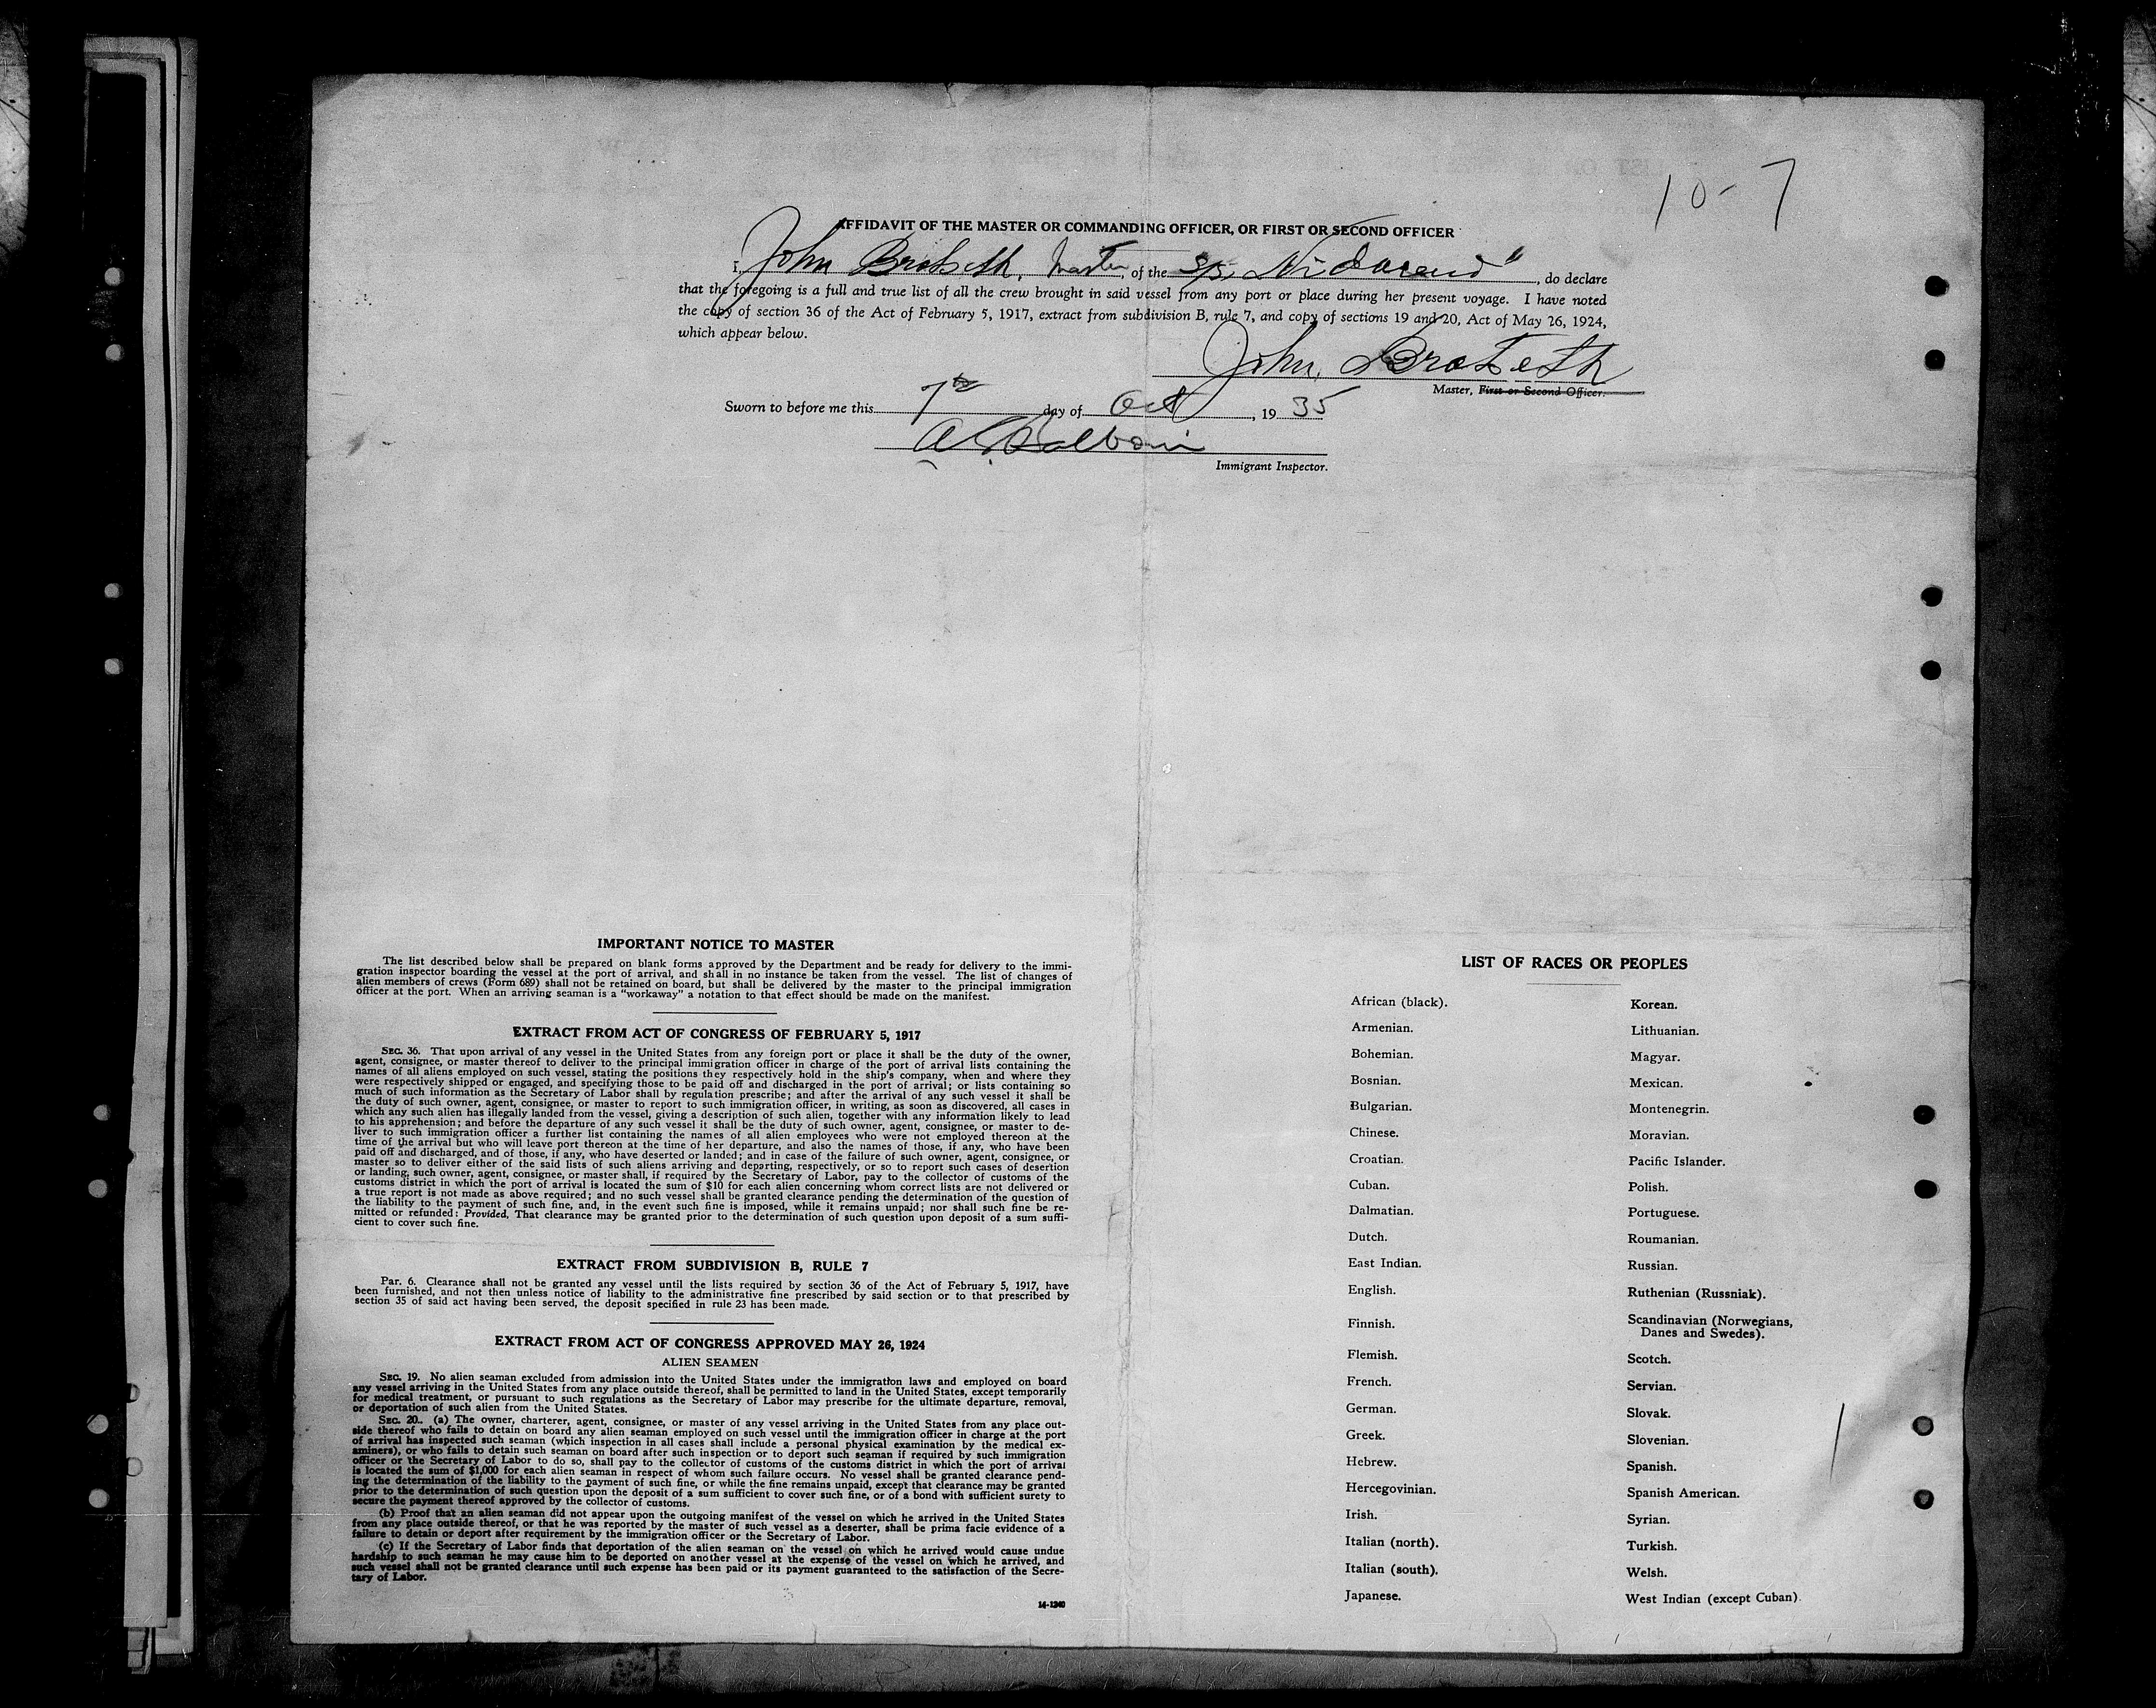 10-7
AFFIDAVIT OF THE MASTER OR COMMANDING OFFICER, OR FIRST OR SECOND OFFICER
I, John Brotseth, Master, of the S/S, do declare
that the foregoing is a full and true list of all the crew brought in said vessel from any port or place during her present voyage. I have noted
the copy of section 36 of the Act of February 5, 1917, extract from subdivision B, rule 7, and copy of sections 19 and 20, Act of May 26, 1924,
which appear below.
John Brotseth
Master, First or Second Officer.
Sworn to before me this 7th day of Oct, 19 35
Immigrant Inspector.
IMPORTANT NOTICE TO MASTER
The list described below shall be prepared on blank forms approved by the Department and be ready for delivery to the immi-
gration inspector boarding the vessel at the port of arrival, and shall in no instance be taken from the vessel. The list of changes of
alien members of crews (Form 689) shall not be retained on board, but shall be delivered by the master to the principal immigration
officer at the port. When an arriving seaman is a "workaway" a notation to that effect should be made on the manifest.
EXTRACT FROM ACT OF CONGRESS OF FEBRUARY 5, 1917
SEC. 36. That upon arrival of any vessel in the United States from any foreign port or place it shall be the duty of the owner,
agent, consignee, or master thereof to deliver to the principal immigration officer in charge of the port of arrival lists containing the
names of all aliens employed on such vessel, stating the positions they respectively hold in the ship's company, when and where they
were respectively shipped or engaged, and specifying those to be paid off and discharged in the port of arrival; or lists containing so
much of such information as the Secretary of Labor shall by regulation prescribe; and after the arrival of any such vessel it shall be
the duty of such owner, agent, consignee, or master to report to such immigration officer, in writing, as soon as discovered, all cases in
which any such alien has illegally landed from the vessel, giving a description of such alien, together with any information likely to lead
to his apprehension; and before the departure of any such vessel it shall be the duty of such owner, agent, consignee, or master to de-
liver to such immigration officer a further list containing the names of all alien employees who were not employed thereon at the
time of the arrival but who will leave port thereon at the time of her departure, and also the names of those, if any, who have been
paid off and discharged, and of those, if any, who have deserted or landed; and in case of the failure of such owner, agent, consignee, or
master so to deliver either of the said lists of such aliens arriving and departing, respectively, or so to report such cases of desertion
or landing, such owner, agent, consignee, or master shall, if required by the Secretary of Labor, pay to the collector of customs of the
customs district in which the port of arrival is located the sum of $10 for each alien concerning whom correct lists are not delivered or
a true report is not made as above required; and no such vessel shall be granted clearance pending the determination of the question of
the liability to the payment of such fine, and, in the event such fine is imposed, while it remains unpaid; nor shall such fine be re-
mitted or refunded: Provided, That clearance may be granted prior to the determination of such question upon deposit of a sum suffi-
cient to cover such fine.
EXTRACT FROM SUBDIVISION B, RULE 7
Par. 6. Clearance shall not be granted any vessel until the lists required by section 36 of the Act of February 5, 1917, have
been furnished, and not then unless notice of liability to the administrative fine prescribed by said section or to that prescribed by
section 35 of said act having been served, the deposit specified in rule 23 has been made.
EXTRACT FROM ACT OF CONGRESS APPROVED MAY 26, 1924
ALIEN SEAMEN
SEC. 19. No alien seaman excluded from admission into the United States under the immigration laws and employed on board
any vessel arriving in the United States from any place outside thereof, shall be permitted to land in the United States, except temporarily
for medical treatment, or pursuant to such regulations as the Secretary of Labor may prescribe for the ultimate departure, removal,
or deportation of such alien from the United States.
SEC. 20. (a) The owner, charterer, agent, consignee, or master of any vessel arriving in the United States from any place out-
side thereof who fails to detain on board any alien seaman employed on such vessel until the immigration officer in charge at the port
of arrival has inspected such seaman (which inspection in all cases shall include a personal physical examination by the medical ex-
aminers), or who fails to detain such seaman on board after such inspection or to deport such seaman if required by such immigration
officer or the Secretary of Labor to do so, shall pay to the collector of customs of the customs district in which the port of arrival
is located the sum of $1,000 for each alien seaman in respect of whom such failure occurs. No vessel shall be granted clearance pend-
ing the determination of the liability to the payment of such fine, or while the fine remains unpaid, except that clearance may be granted
prior to the determination of such question upon the deposit of a sum sufficient to cover such fine, or of a bond with sufficient surety to
secure the payment thereof approved by the collector of customs.
(b) Proof that an alien seaman did not appear upon the outgoing manifest of the vessel on which he arrived in the United States
from any place outside thereof, or that he was reported by the master of such vessel as a deserter, shall be prima facie evidence of a
failure to detain or deport after requirement by the immigration officer or the Secretary of Labor.
(c) If the Secretary of Labor finds that deportation of the alien seaman on the vessel on which he arrived would cause undue
hardship to such seaman he may cause him to be deported on another vessel at the expense of the vessel on which he arrived, and
such vessel shall not be granted clearance until such expense has been paid or its payment guaranteed to the satisfaction of the Secre-
tary of Labor.
14-1240
LIST OF RACES OR PEOPLES
African (black).
Armenian.
Bohemian.
Bosnian.
Bulgarian.
Chinese.
Croatian.
Cuban.
Dalmatian.
Dutch.
East Indian.
English.
Finnish.
Flemish.
French.
German.
Greek.
Hebrew.
Hercegovinian.
Irish.
Italian (north).
Italian (south).
Japanese.
Korean.
Lithuanian.
Magyar.
Mexican.
Montenegrin.
Moravian.
Pacific Islander.
Polish.
Portuguese.
Roumanian.
Russian.
Ruthenian (Russniak).
Scandinavian (Norwegians,
Danes and Swedes).
Scotch.
Servian.
Slovak.
Slovenian.
Spanish.
Spanish American.
Syrian.
Turkish.
Welsh.
West Indian (except Cuban).